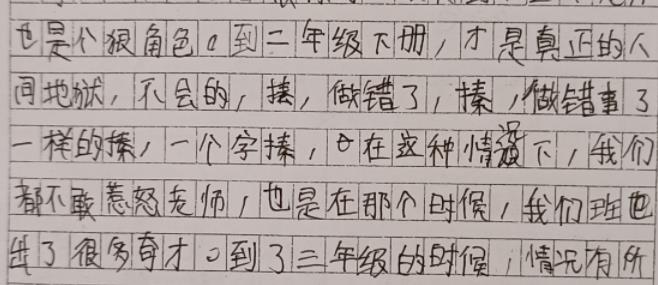 也是个狠角色。到二年级下册，才是真正的人
间地狱，不会的，揍，做错了，揍，做错事了
一样的揍，一个字揍，在这种情况下，我们
都不敢惹怒老师，也是在那个时候，我们班也
出了很多奇才。到了三年级的时候，情况有所